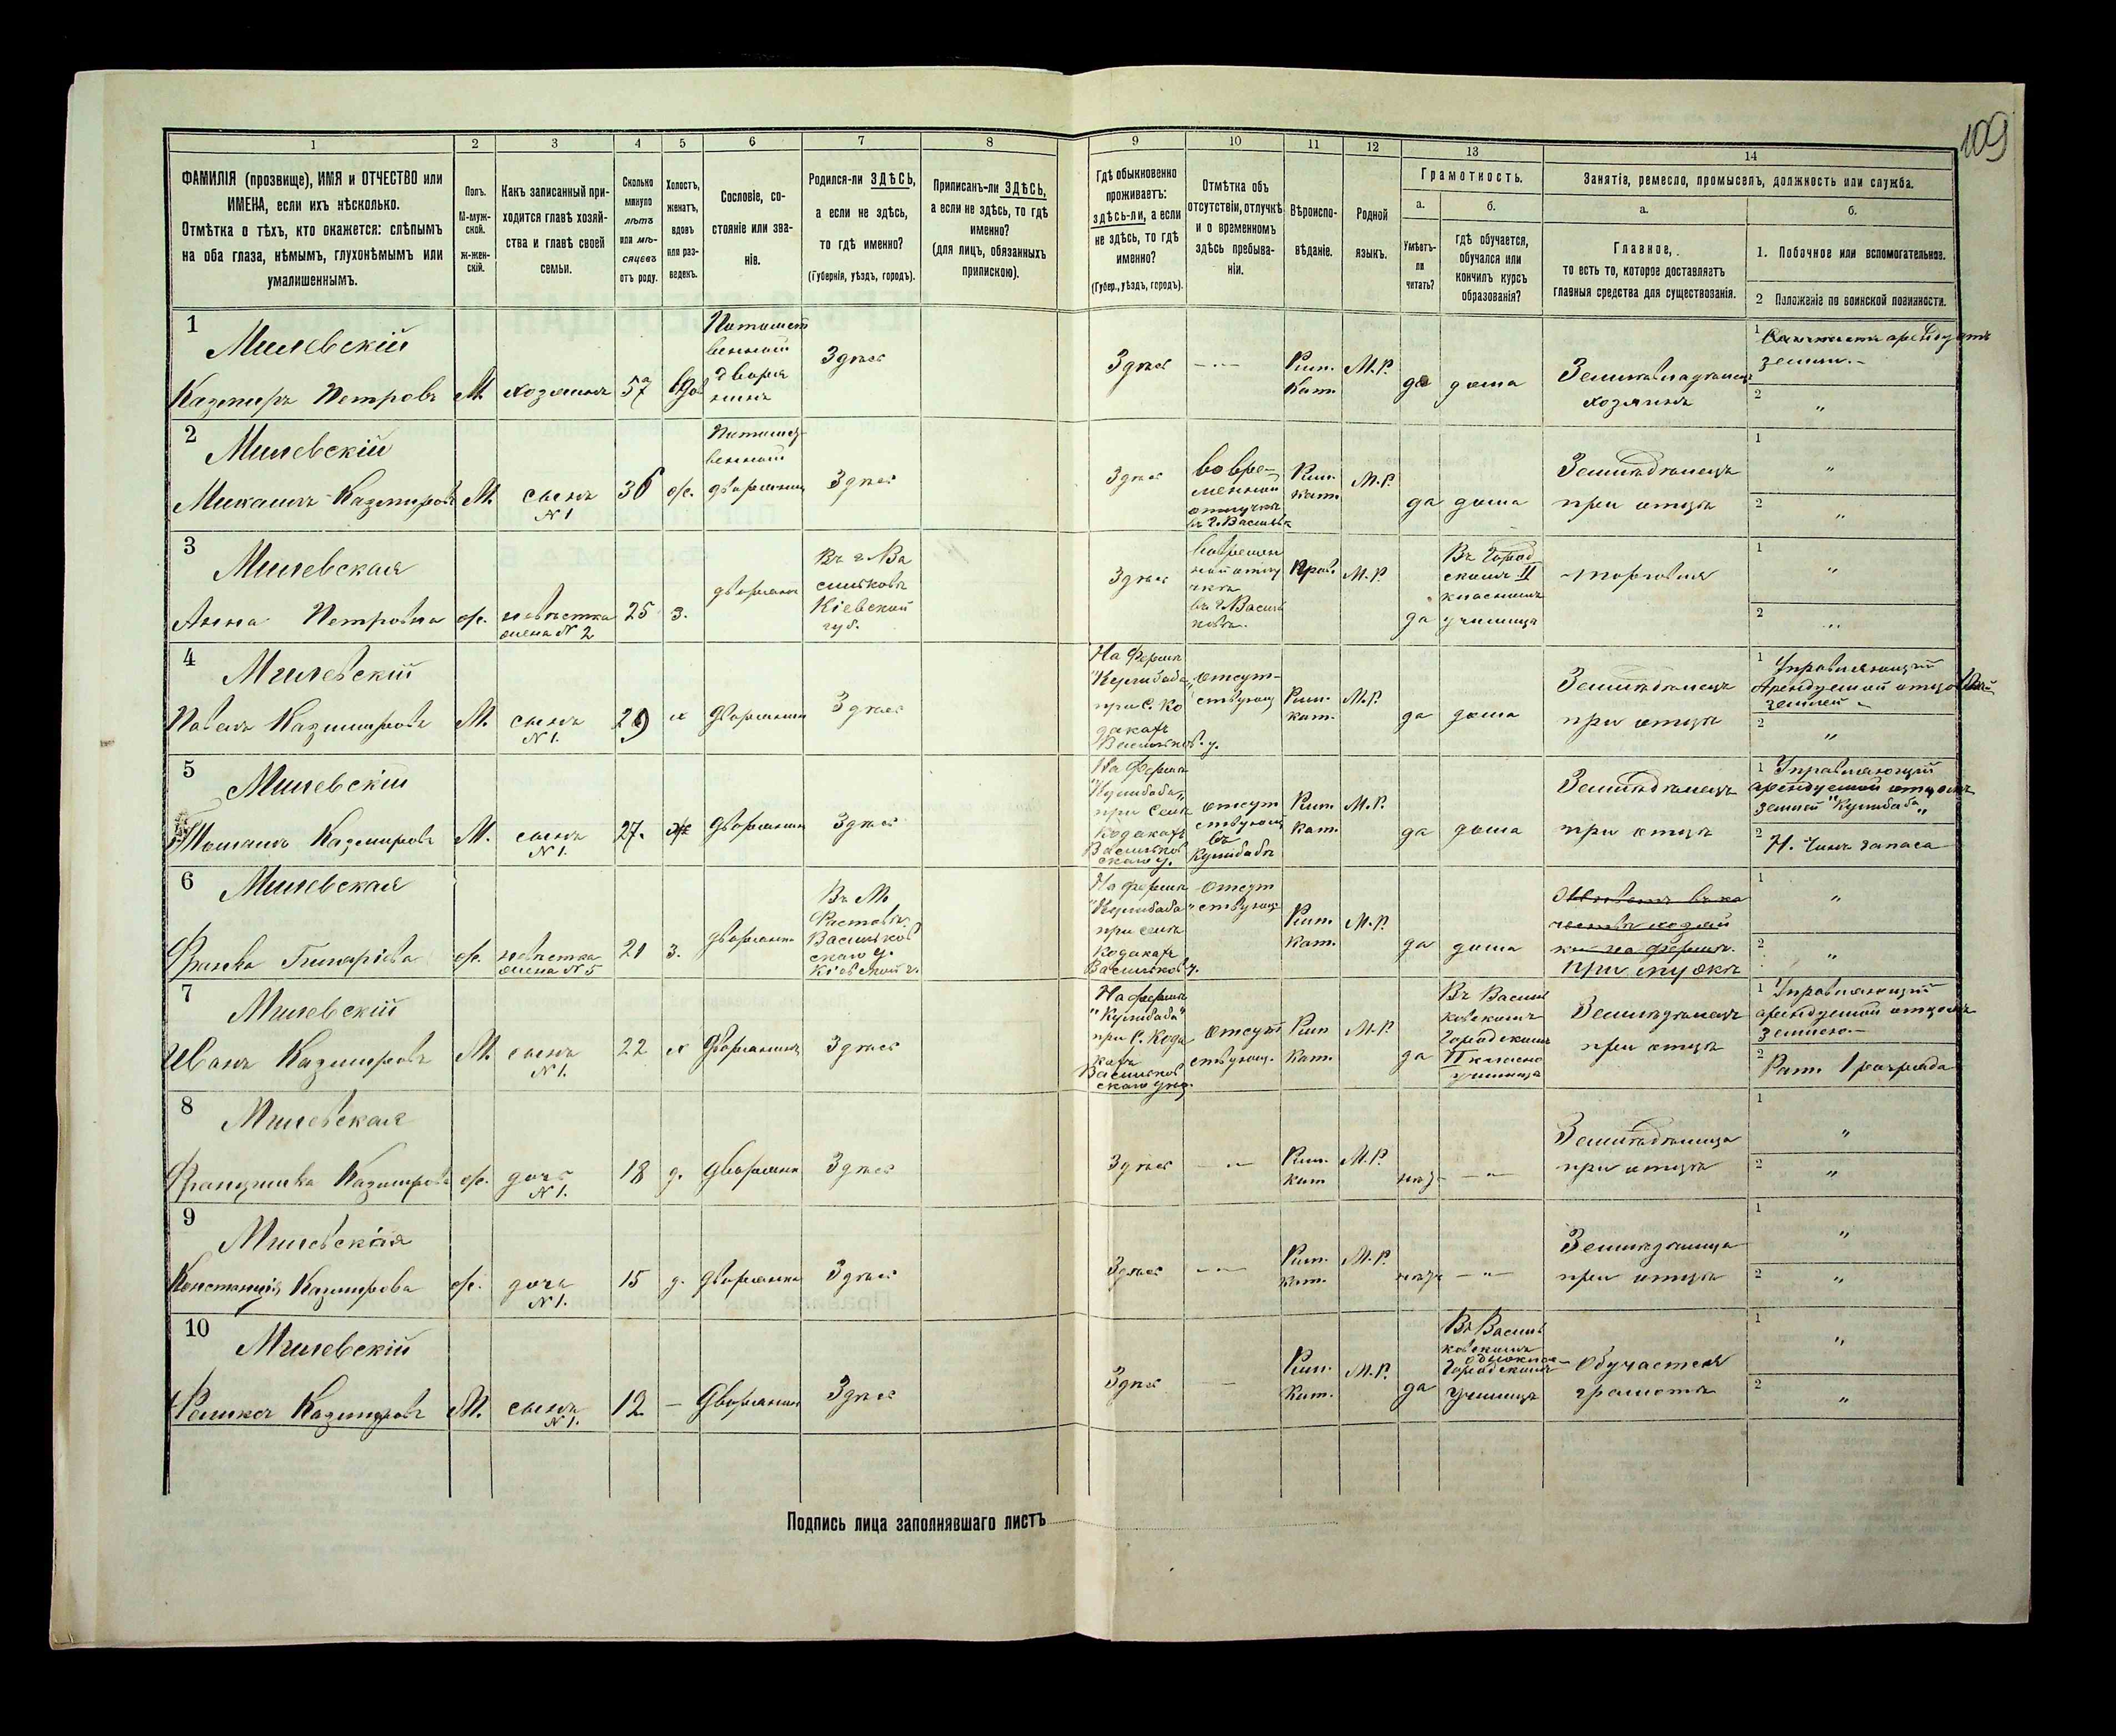 109
1
2
3
4
5
6
7
8
9
10
11
12
13
14
ФАМИЛІЯ (прозвище), ИМЯ и ОТЧЕСТВО или
ИМЕНА, если ихъ нѣсколько.
Отмѣтка о тѣхъ, кто окажется: слѣпымъ
на оба глаза, нѣмымъ, глухонѣмымъ или
умалишеннымъ.
Полъ.
М-муж-
ской.
Ж-жен-
скій.
Какъ записанный при-
ходится главѣ хозяй-
ства и главѣ своей
семьи.
Сколько
минуло
лѣтъ
или мѣ-
сяцевъ
отъ роду.
Холостъ,
женатъ,
вдовъ
или раз-
веденъ.
Сословіе, со-
стояніе или зва-
ніе.
Родился-ли ЗДѢСЬ,
а если не здѣсь,
то гдѣ именно?
(Губернія, уѣздъ, городъ).
Приписанъ-ли ЗДѢСЬ,
а если не здѣсь, то гдѣ
именно?
(для лицъ, обязанныхъ
припискою).
Гдѣ обыкновенно
проживаетъ:
здѣсь-ли, а если
не здѣсь, то гдѣ
именно?
(Губер., уѣздъ, городъ).
Отмѣтка объ
отсутствіи, отлучкѣ
и о временномъ
здѣсь пребыва-
ніи.
Вѣроиспо-
вѣданіе.
Родной
языкъ.
Грамотность.
а.
Умѣетъ-
ли
читать?
б.
гдѣ обучается,
обучался или
кончилъ курсъ
образованія?
Занятіе, ремесло, промыселъ, должность или служба.
а.
Главное,
то есть то, которое доставляетъ
главныя средства для существованія.
б.
1. Побочное или вспомогательное.
2 Положеніе по воинской повинности.
1
Милевскій
Казимиръ Петровъ
М.
хозяинъ
57
вдов
Потомст
венный
дворя
нинъ
Здѣсь
Здѣсь
— " —
Рим.
Кат.
М.Р.
да
дома
Землевладѣлецъ
хозяинъ
1
арендуетъ
земли.-
2
"
2
Милевскій
Михаилъ Казимировъ
М.
сынъ
N 1
36
ж.
Потомст-
венный
дворянинъ
Здѣсь
Здѣсь
во вре-
менной
отлучкѣ
въ г. Васильк
Рим.
кат.
М.Р.
да
дома
Земледѣлецъ
при отцѣ
1
"
2
"
3
Милевская
Анна Петровна
ж.
невѣстка
жена N 2
25
з.
дворянка
Въ г. Ва
сильковѣ
Кіевской
губ.
Здѣсь
во времен
ной отлу
чкѣ
въ г. Василь
ковѣ.
Прав.
М.Р.
да
Въ Город
скомъ II
класномъ
училищѣ
торговля
1
"
2
"
4
Милевскій
Павелъ Казимировъ
М.
сынъ
N 1.
29
х
дворянинъ
Здѣсь
На фермѣ
"Кулибаба"
при С. Ко
дакахъ
Васильков. у.
отсут-
ствующ
Рим.
кат.
М.Р.
да
дома
Земледѣлецъ
при отцѣ
1 Управляющій
арендуемой отцомъ
землей
2
"
5
Милевскій
Казимировъ
М.
сынъ
N 1.
27.
ж
дворянинъ
Здѣсь
На фермѣ
"Кулибаба"
при Селѣ
Кодакахъ
Васильков
скаго у.
отсут
ствующ
въ
Кулибабѣ
Рим
кат.
М.Р.
да
дома
Земледѣлецъ
при отцѣ
1 Управляющій
арендуемой отцомъ
землей "Кулибаба"
2 Н. чинъ запаса
6
Милевская
ж.
невѣстка
жена N 5
21
з.
дворянка
Въ М.
Васильков
скаго у.
Кіевской г.
На фермѣ
"Кулибаба"
при селѣ
Кодакахъ
Васильков у.
отсут
ствующ
Рим
Кат.
М.Р.
да
дома
при мужѣ
1
"
2
"
7
Милевскій
Иванъ Казимировъ
М.
сынъ
N 1.
22
х
дворянинъ
Здѣсь
На фермѣ
"Кулибаба"
при С. Кода
кахъ
Васильков
скаго уѣз.
Отсут
ствующ.
Рим
Кат.
М.Р.
да
Въ Василь
ковскомъ
Городскомъ
II класно
училищѣ
Земледѣлецъ
при отцѣ
1 Управляющій
арендуемой отцомъ
землею.-
2 Рат. 1 разряда
8
Милевская
Францишка Казимирова
ж.
дочь
N 1.
18
д.
дворянка
Здѣсь
Здѣсь
— " —
Рим.
Кат
М.Р.
нѣт
— " —
Земледѣлица
при отцѣ
1
"
2
"
9
Милевская
Констанція Казимирова
ж.
дочь
N 1.
15
д.
дворянка
Здѣсь
Здѣсь
— " —
Рим.
Кат.
М.Р.
нѣт
— " —
Земледѣлица
при отцѣ
1
"
2
"
10
Милевскій
Феликсъ Казимировъ
М.
сынъ
N 1.
12
—
дворянинъ
Здѣсь
Здѣсь
—
Рим.
Кат.
М.Р.
да
Въ Василь
ковскомъ
Городскомъ
училищѣ
Обучается
грамотѣ
1
"
2
"
Подпись лица заполнявшаго листъ